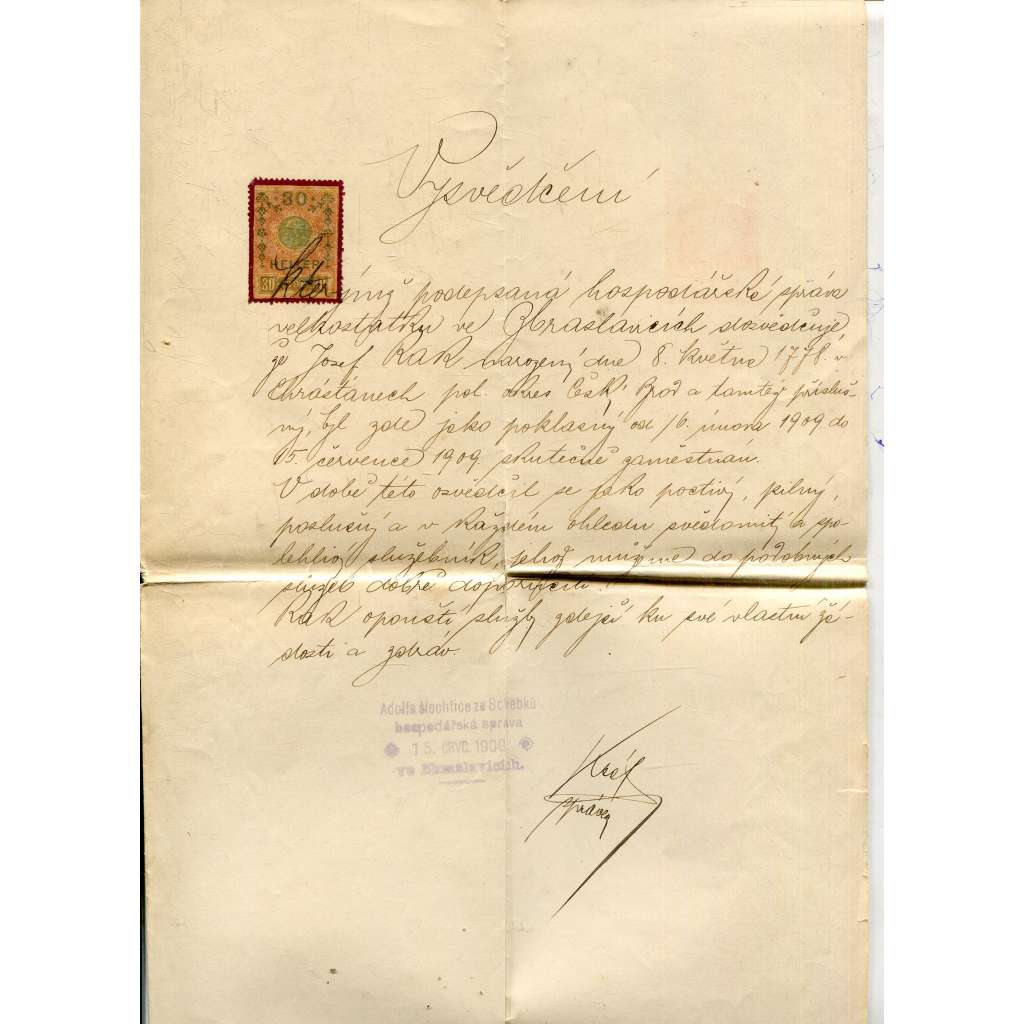 Vysvědčení
30
HELLER
30
kterýmž podepsaná hospodářská správa
velkostatku ve Zbraslavicích dosvědčuje
že Josef Rak narozený dne 8. května 1778. v
Chrášťanech pol. okres Česk. Brod a tamtéž přísluš-
ný, byl zde jako poklasný od 16. února 1909 do
15. července 1909 skutečně zaměstnán.
V době této osvědčil se jako poctivý, pilný,
poslušný a v každém ohledu svědomitý a spo-
lehlivý služebník, jehož můžeme do podobných
služeb dobře doporučiti.
Rak opouští služby zdejší ku své vlastní žá-
dosti a zdráv.
Adolfa šlechtice ze
hospodářská správa
15. ČRVC. 1909
ve Zbraslavicích.
Král
správce